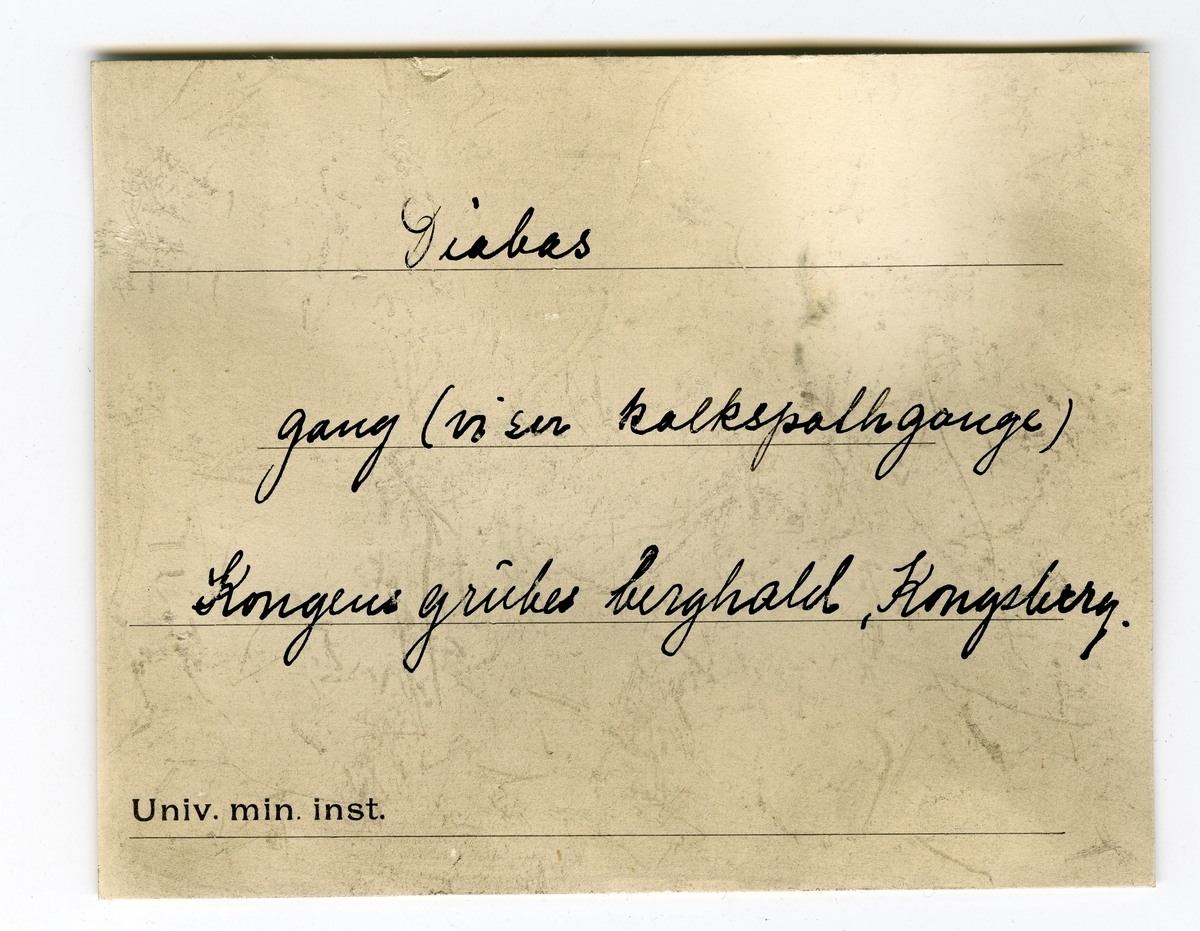 Diabas
gang (viser kalkspathgange)
Kongens grübes berghald, Kongsberg.
Univ. min. inst.